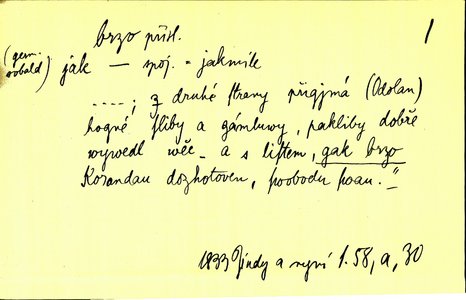 brzo přísl. 1
(germ. sobald) jak — spoj. = jakmile
....; z druhé strany přigjmá (Odolan)
hogné sliby a gámluwy, pakliby dobře
wywedl wěc - a s listem, gak brzo
Korandau dozhotowen,
1833 Jindy a nyní I. 58, a, 30